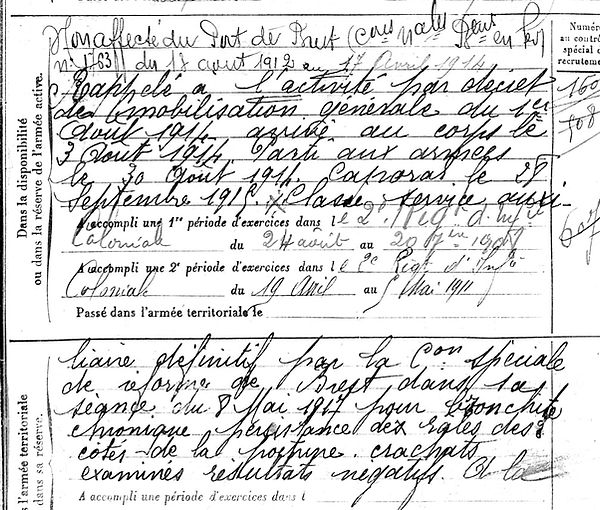 Non affecté du Port de Brest (Cons nales Pent en
n° 1763 du 17 août 1912 au 17 Avril 1914
Rappelé à l'activité par décret
de mobilisation générale du 1er
Août 1914 arrivé au corps le
3 Août 1914. Parti aux armées
le 30 Août 1914. Caporal le 28
Septembre 1915. Classé service auxi-
A accompli une 1re période d'exercices dans le 2e Régt d'Infie
Coloniale du 24 août au 20 1908
A accompli une 2e période d'exercices dans le 2e Régt d'Infie
Coloniale du 19 Avril au 5 Mai 1911
Passé dans l'armée territoriale le
liaire définitif par la Con spéciale
de réforme de Brest dans sa
séance du 8 Mai 1917 pour bronchite
chronique persistance des râles des 2
côtés de la poitrine. crachats
examinés résultats négatifs. A la
A accompli une période d'exercices dans l
Dans la disponibilité
ou dans la réserve de l'armée active.
l'armée territoriale
dans sa réserve.
Numéro
au contrôle
spécial d
recrutemen